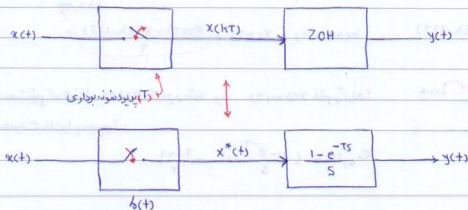 x(t) x(kT) ZOH y(t)
پریود نمونه برداری (T)
x(t) x*(t) 1-e^-TS / S y(t)